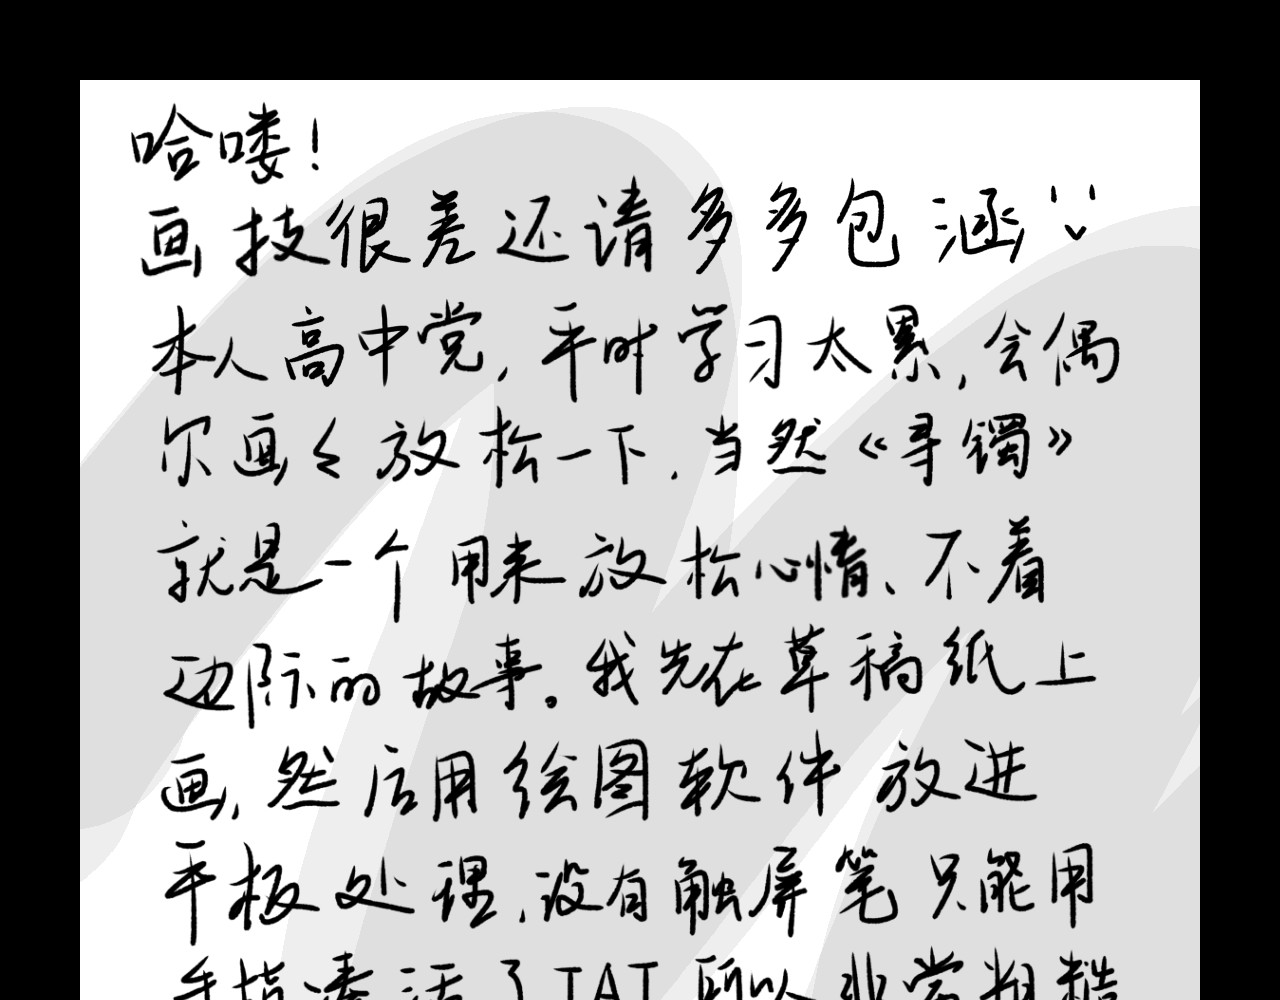 哈喽!
画技很差还请多多包涵
本人高中党,平时学习太累,会偶
尔画々放松一下.当然《寻镯》
就是一个用来放松心情、不着
边际的故事。我先在草稿纸上
画,然后用绘图软件放进
平板处理.没有触屏笔只能用
手指凑活了TAT所以非常粗糙